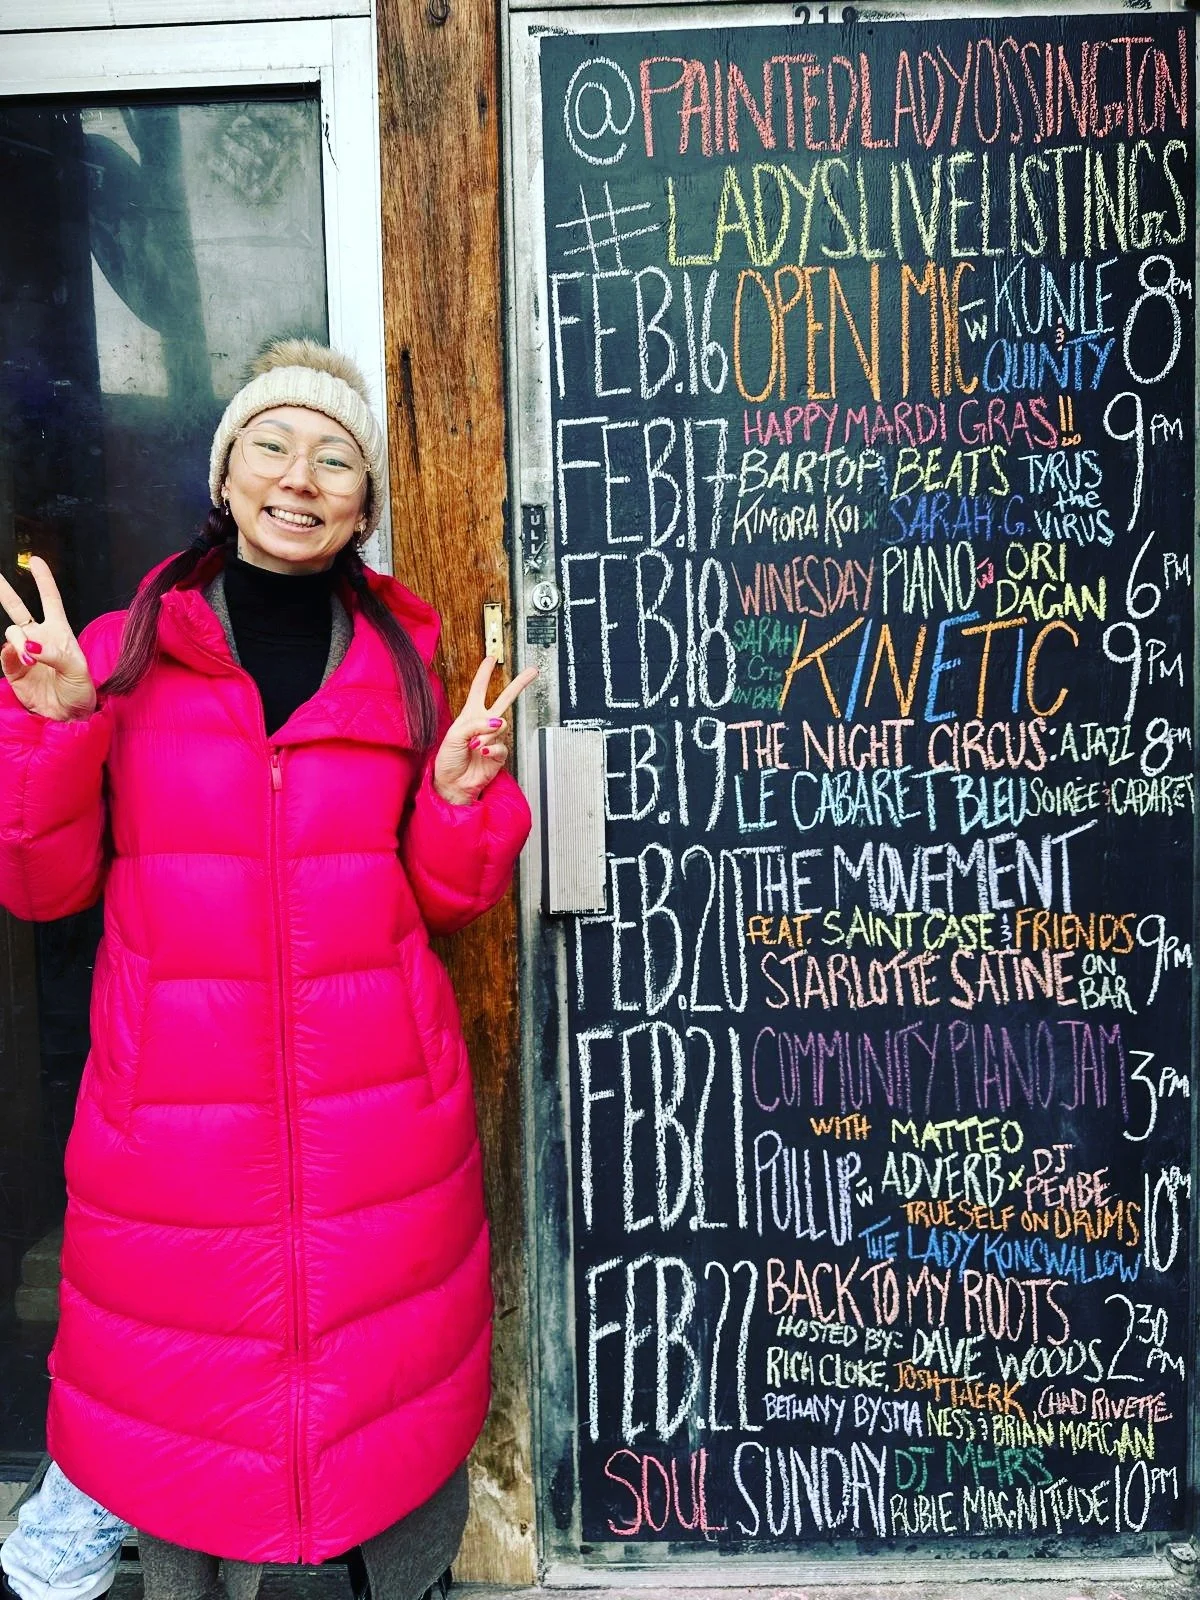 218
@PAINTEDLADYOSSINGTON
#LADYSLIVELISTINGS
FEB.16 OPEN MIC W KUNLE & QUINTY 8PM
FEB.17 HAPPY MARDI GRAS!! 9PM
BARTOP & BEATS TYRUS the VIRUS
KIMORA KOI x SARAH G.
FEB.18 WINESDAY PIANO W ORI DAGAN 6PM
SARAH G. ON BAR KINETIC 9PM
FEB.19 THE NIGHT CIRCUS: A JAZZ 8PM
LE CABARET BLEU SOIRÉE & CABARET
FEB.20 THE MOVEMENT
FEAT. SAINT CASE & FRIENDS 9PM
STARLOTTE SATINE ON BAR
FEB.21 COMMUNITY PIANO JAM 3PM
WITH MATTEO
PULL UP W ADVERB x DJ PEMBE 10PM
TRUESELF ON DRUMS
THE LADY KONSWALLOW
FEB.22 BACK TO MY ROOTS 230PM
HOSTED BY: DAVE WOODS
RICH CLOKE, JOSH TAERK, CHAD RIVETTE
BETHANY BYSMA NESS & BRIAN MORGAN
SOUL SUNDAY DJ M4RS
RUBIE MAGNITUDE 10PM
PULL